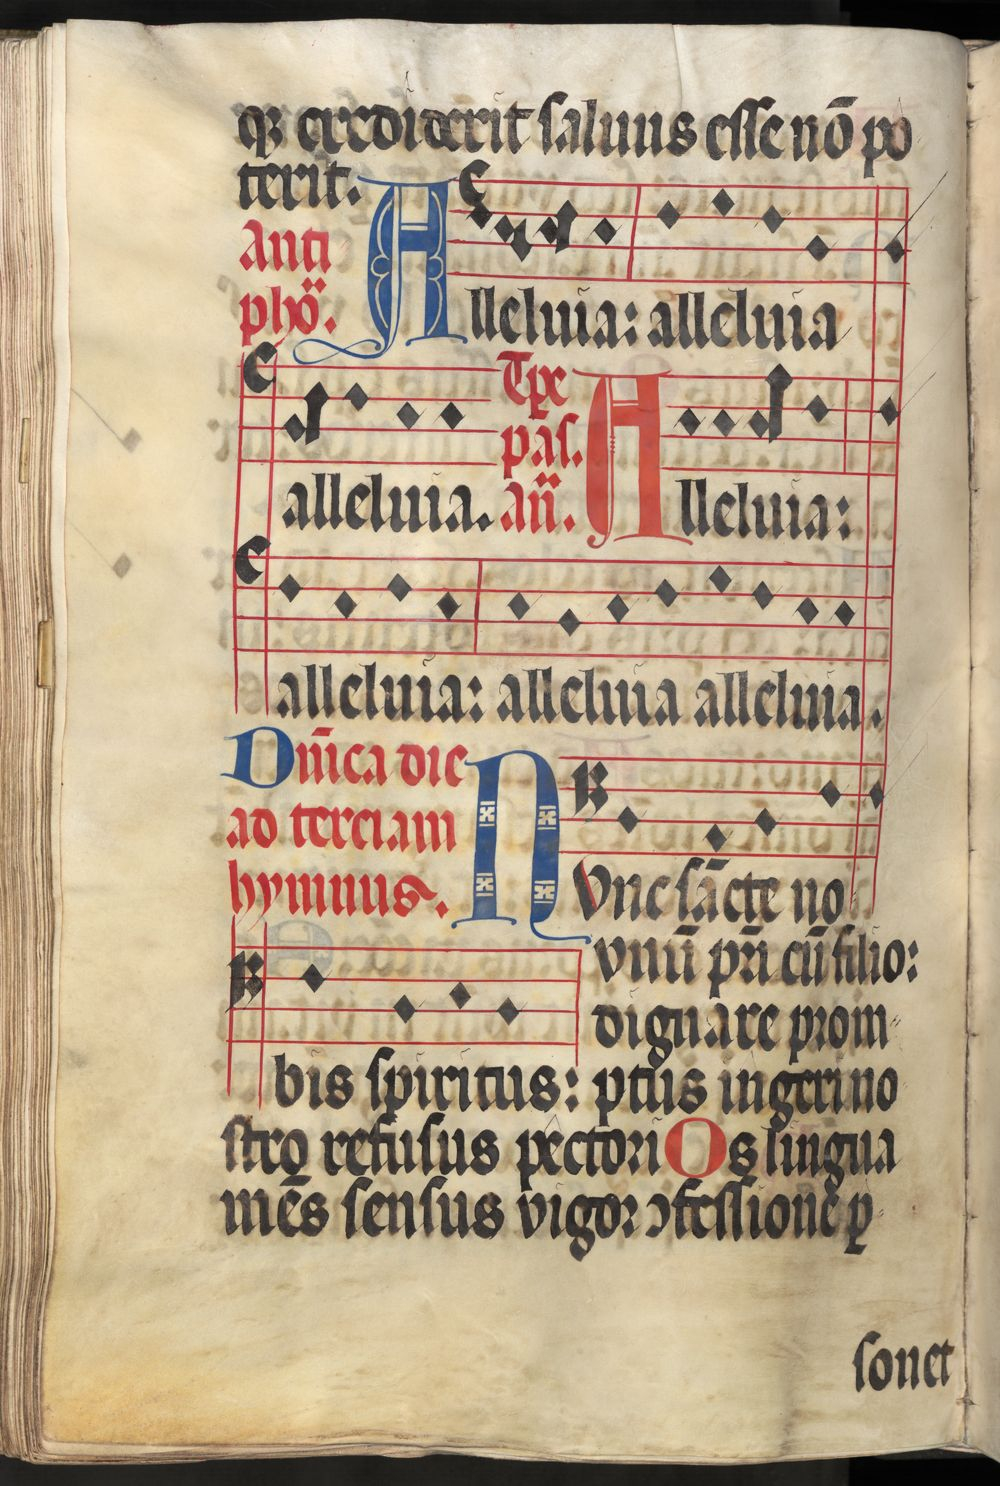 qꝫ crediderit saluus esse nō po
terit.
Anti
phō.
Alleluia: alleluia
alleluia.
Tpe
pas.
an̄.
Alleluia:
alleluia: alleluia alleluia.
Dn̄ica die
ad terciam
hymnus.
NVnc sācte no
bis spiritus:
vnū pr̄i cū filio:
dignare prom
ptus ingeri no
stro refusus pectori Os lingua
mēs sensus vigor ↄfessionē ꝑ
sonet